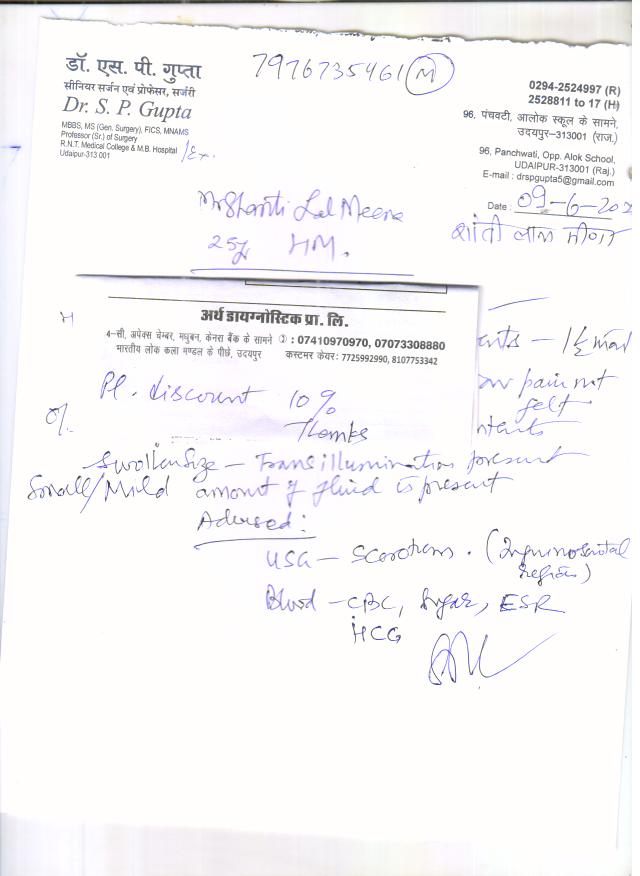 7976735461 (M)
डॉ. एस. पी. गुप्ता
सीनियर सर्जन एवं प्रोफेसर, सर्जरी
Dr. S. P. Gupta
MBBS, MS (Gen. Surgery), FICS, MNAMS
Professor (Sr.) of Surgery
R.N.T. Medical College & M.B. Hospital
Udaipur-313 001
/Ex.
0294-2524997 (R)
2528811 to 17 (H)
96, पंचवटी, आलोक स्कूल के सामने,
उदयपुर-313001 (राज.)
96, Panchwati, Opp. Alok School,
UDAIPUR-313001 (Raj.)
E-mail : drspgupta5@gmail.com
Date : 09-6-20
Mr Shanti Lal Meena
शांती लाल मीणा
25y HM.
अर्थ डायग्नोस्टिक प्रा. लि.
4-सी, अपेक्स चेम्बर, मधुबन, केनरा बैंक के सामने ✆ : 07410970970, 07073308880
भारतीय लोक कला मण्डल के पीछे, उदयपुर कस्टमर केयर: 7725992990, 8107753342
Pl. discount 10%
Thanks
pain not
felt
O/.
Swollen Size - Transillumination present
Small/Mild amount of fluid is present
Advised:
USG - Scrotum. (Inguinoscrotal
region)
Blood - CBC, Sugar, ESR
HCG